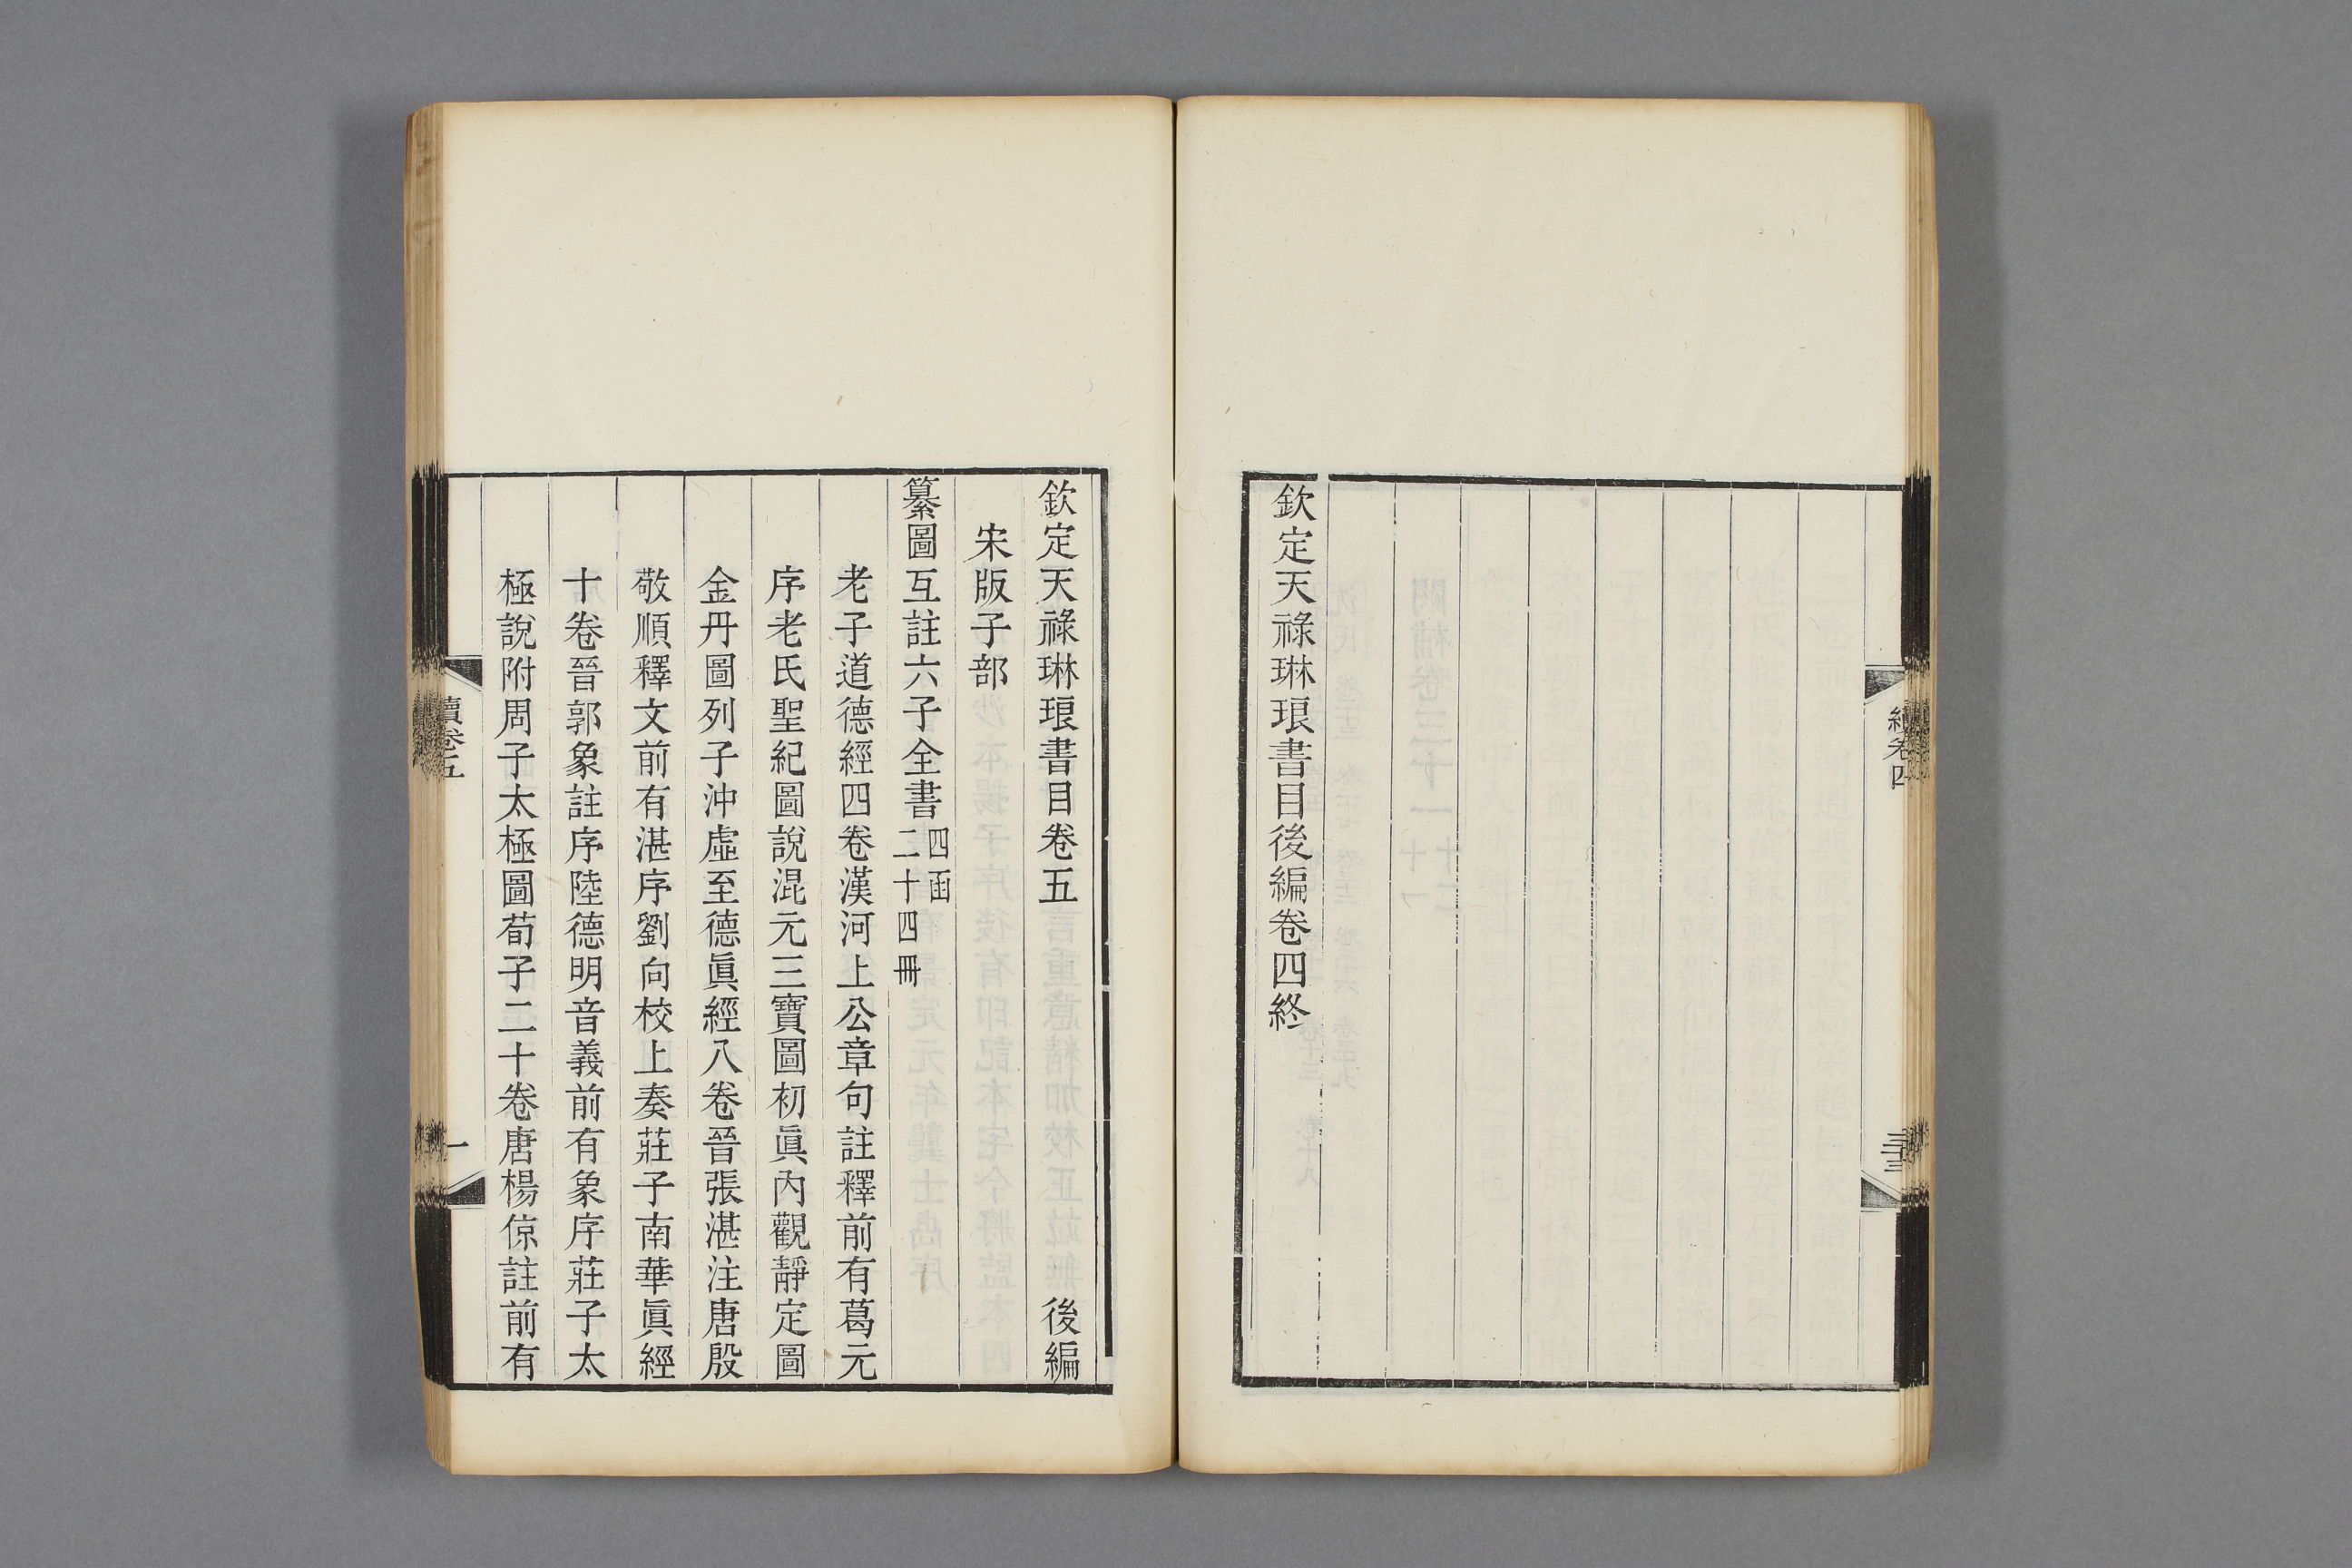 欽定天祿琳琅書目後編卷四終
欽定天祿琳琅書目卷五 後編
宋版子部
纂圖互註六子全書 四函 二十四冊
老子道德經四卷漢河上公章句註釋前有葛元
序老氏聖紀圖說混元三寶圖初眞內觀靜定圖
金丹圖列子沖虛至德眞經八卷晉張湛注唐殷
敬順釋文前有湛序劉向校上奏莊子南華眞經
十卷晉郭象註序陸德明音義前有象序莊子太
極說附周子太極圖荀子二十卷唐楊倞註前有
續卷五
一